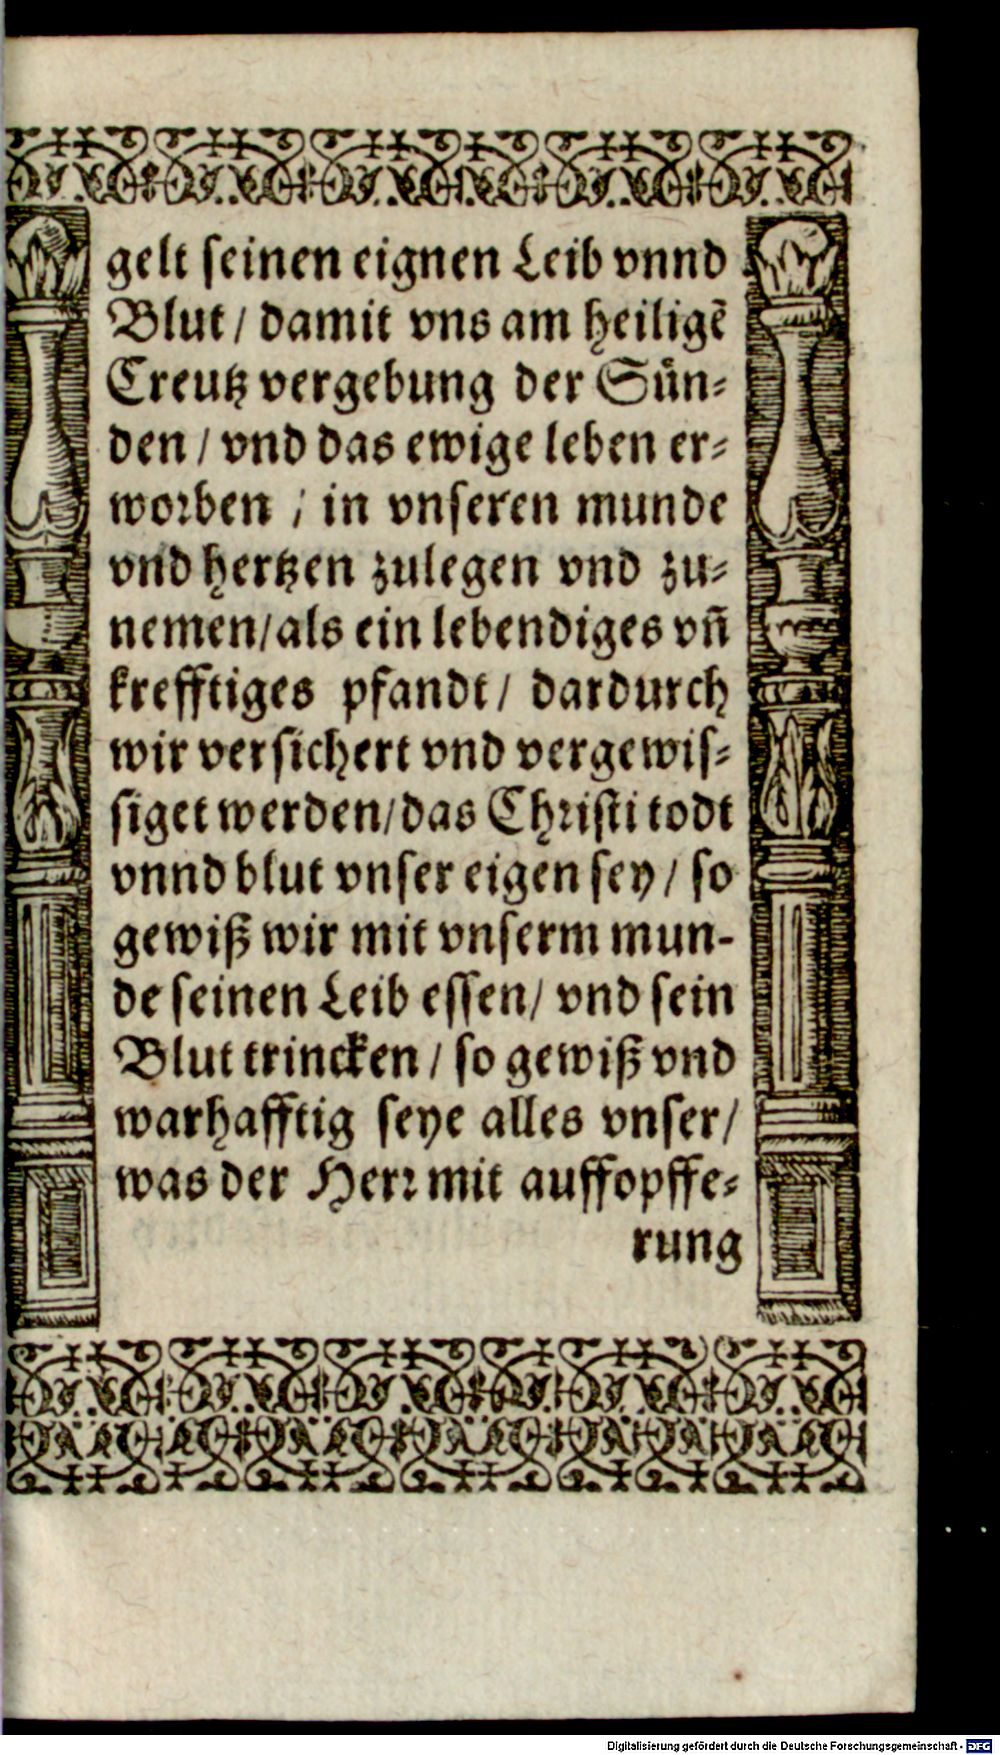 gelt seinen eignen Leib vnnd
Blut / damit vns am heiligẽ
Creutz vergebung der Sün⸗
den / vnd das ewige leben er⸗
worben / in vnseren munde
vnd hertzen zulegen vnd zu⸗
nemen/als ein lebendiges vñ
krefftiges pfandt / dardurch
wir versichert vnd vergewis⸗
siget werden/das Christi todt
vnnd blut vnser eigen sey / so
gewiß wir mit vnserm mun-
de seinen Leib essen/ vnd sein
Blut trincken / so gewiß vnd
warhafftig seye alles vnser/
was der Herr mit auffopffe⸗
rung
Digitalisierung gefördert durch die Deutsche Forschungsgemeinschaft - DFG